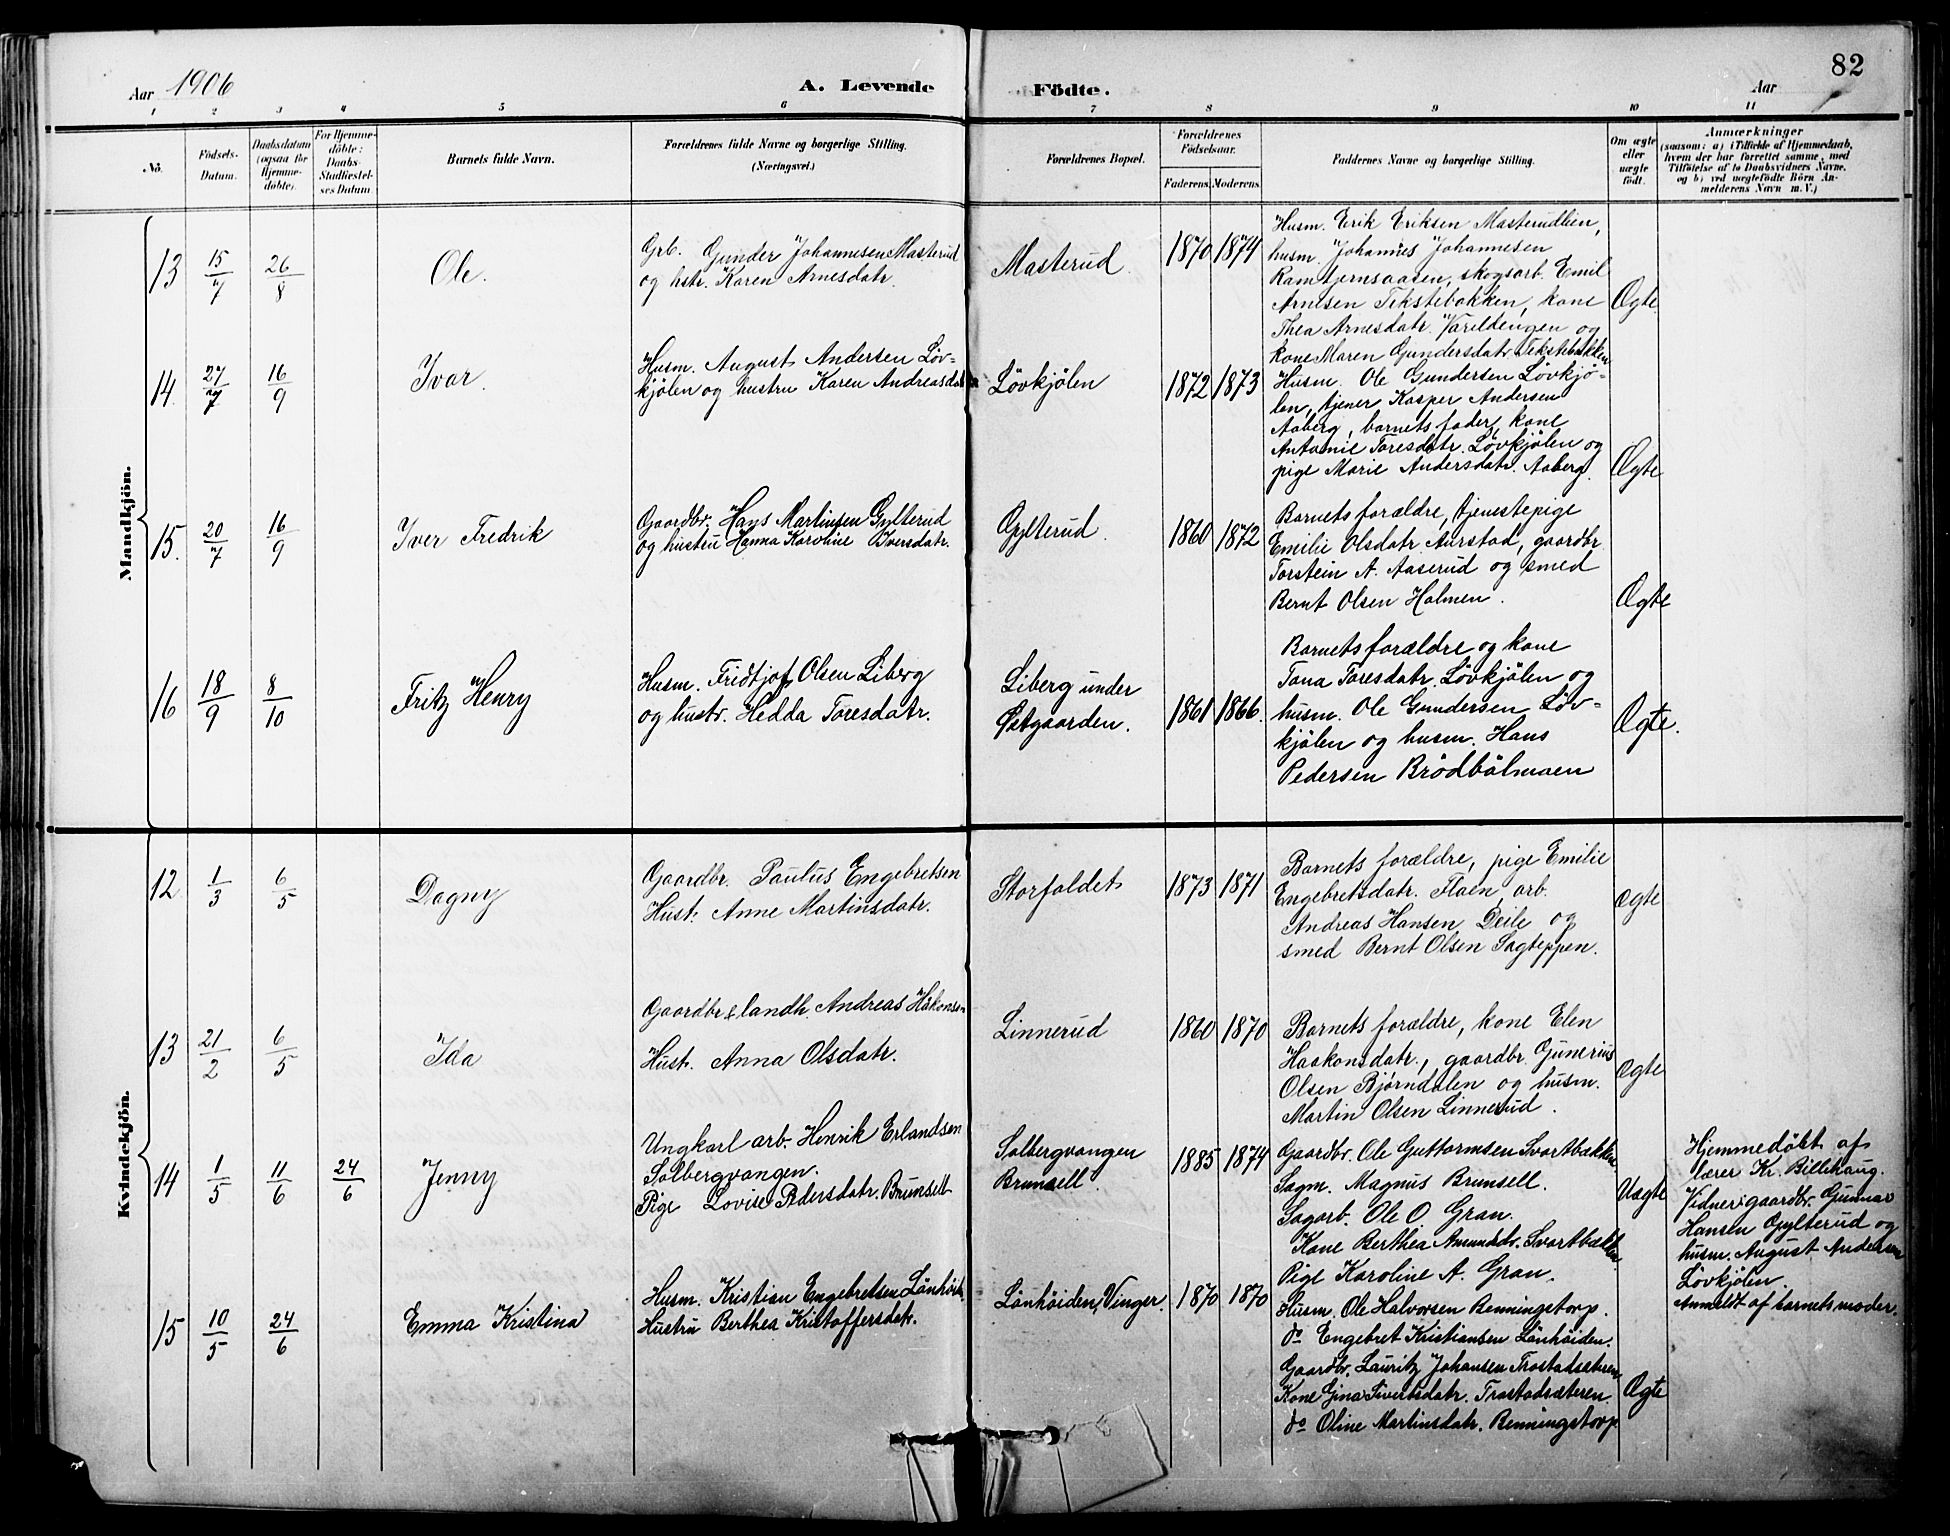 Aar 1906
A. Levende
Födte.
Aar
82
1 2 3 4 5 6 7 8 9 10 11
No.
Födsels-
Datum.
Daabsdatum
(ogsaa for
Hjemme-
döbte).
For Hjemme-
döbte:
Daabs-
Stadfæstel-
ses Datum.
Barnets fulde Navn.
Forældrenes fulde Navne og borgerlige Stilling.
(Næringsvei.)
Forældrenes Bopæl.
Forældrenes
Födselsaar.
Faderens. Moderens.
Faddernes Navne og borgerlige Stilling.
Om ægte
eller
uægte
født.
Anmærkninger
(saasom: a) i Tilfælde af Hjemmedaab,
hvem der har forrettet samme, med
Tilföielse af to Daabsvidners Navne,
og b) ved uægtefödte Börn An-
melderens Navn m. V.)
Mandkjön.
13 15/7 26/8
Ole.
Grb. Gunder Johannesen Masterud
og hstr. Karen Arnesdatr.
Masterud.
1870 1874
Husm. Erik Eriksen Masterudlien,
husm. Johannes Johannesen
Ramtjernsaasen, skogsarb. Emil
Arnesen Tekstebakken, kone
Thea Arnesdatr. Varildengen og
kone Maren Gundersdatr. Tekstebakken
Ægte.
14. 27/7 16/9
Ivar.
Husm. August Andersen Löv-
kjölen og hustru Karen Andreasdatr
Lövkjölen
1872 1873
Husm. Ole Gundersen Lövkjö-
len, tjener Kasper Andersen
Aaberg, barnets fader, kone
Antomie Toresdatr. Lövkjölen og
pige Marie Andersdatr. Aaberg.
Ægte
15. 20/7 16/9
Iver Fredrik
Gaardbr. Hans Martinsen Gylterud
og hustru Hanna Karoline Iversdatr.
Gylterud.
1860 1872
Barnets forældre, tjenestepige
Emilie Olsdatr. Aurstad, gaardbr.
Torstein A. Aaserud og smed
Bernt Olsen Holmen.
Ægte
16 18/9 8/10
Fritz Henry
Husm. Fridtjof Olsen Liberg
og hustr. Hedda Toresdatr.
Liberg under
Østgaarden.
1861 1866.
Barnets forældre og kone
Tona Toresdatr. Lövkjölen og
husm. Ole Gundersen Löv-
kjölen og husm. Hans
Pedersen Brödbölmoen
Ægte.
Kvindekjön.
12 1/3 6/5
Dagny
Gaardbr. Paulus Engebretsen
Hust. Anne Martinsdatr.
Storfaldet
1873 1871
Barnets forældre, pige Emilie
Engebretsdatr. Flaen, arb.
Andreas Hansen Deile og
smed Bernt Olsen Sagteppen.
Ægte
13 21/2 6/5
Ida
Gaardbr & landh. Andreas Håkonsen
Hust. Anna Olsdatr.
Linnerud
1860 1870
Barnets forældre, kone Elen
Haakonsdatr., gaardbr. Gunerius
Olsen Bjørndalen og husm.
Martin Olsen Linnerud.
Ægte
14 1/5 11/6 24/6
Jenny
Ungkarl arb. Henrik Erlandsen
Solbergvangen.
Pige Lovise Pedersdatr. Brunsell
Solbergvangen
Brunsell.
1885 1874
Gaardbr. Ole Guttormsen Svartbakken
Sagm. Magnus Brunsell.
Sagarb. Ole O. Gran.
Kone Berthea Amundsdr. Svartbakken
Pige Karoline A. Gran.
Uægte
Hjemmedöbt af
lærer Kr. Billehaug.
Vidner: gaardbr. Gunnar
Hansen Gylterud og
husm. August Andersen
Lövkjölen.
Anmeldt af barnets moder.
15 10/5 24/6
Emma Kristina
Husm. Kristian Engebretsen Lönhöid.
Hustru Berthea Kristoffersdatr.
Lönhöiden, Vinger.
1870 1870
Husm. Ole Halvorsen Benningstorp.
do Engebret Kristiansen Lönhöiden.
Gaardbr. Lauritz Johansen Trostadsæteren
Kone Gina Sivertsdatr. Trostadsæteren.
do Oline Martinsdatr. Benningstorp
Ægte